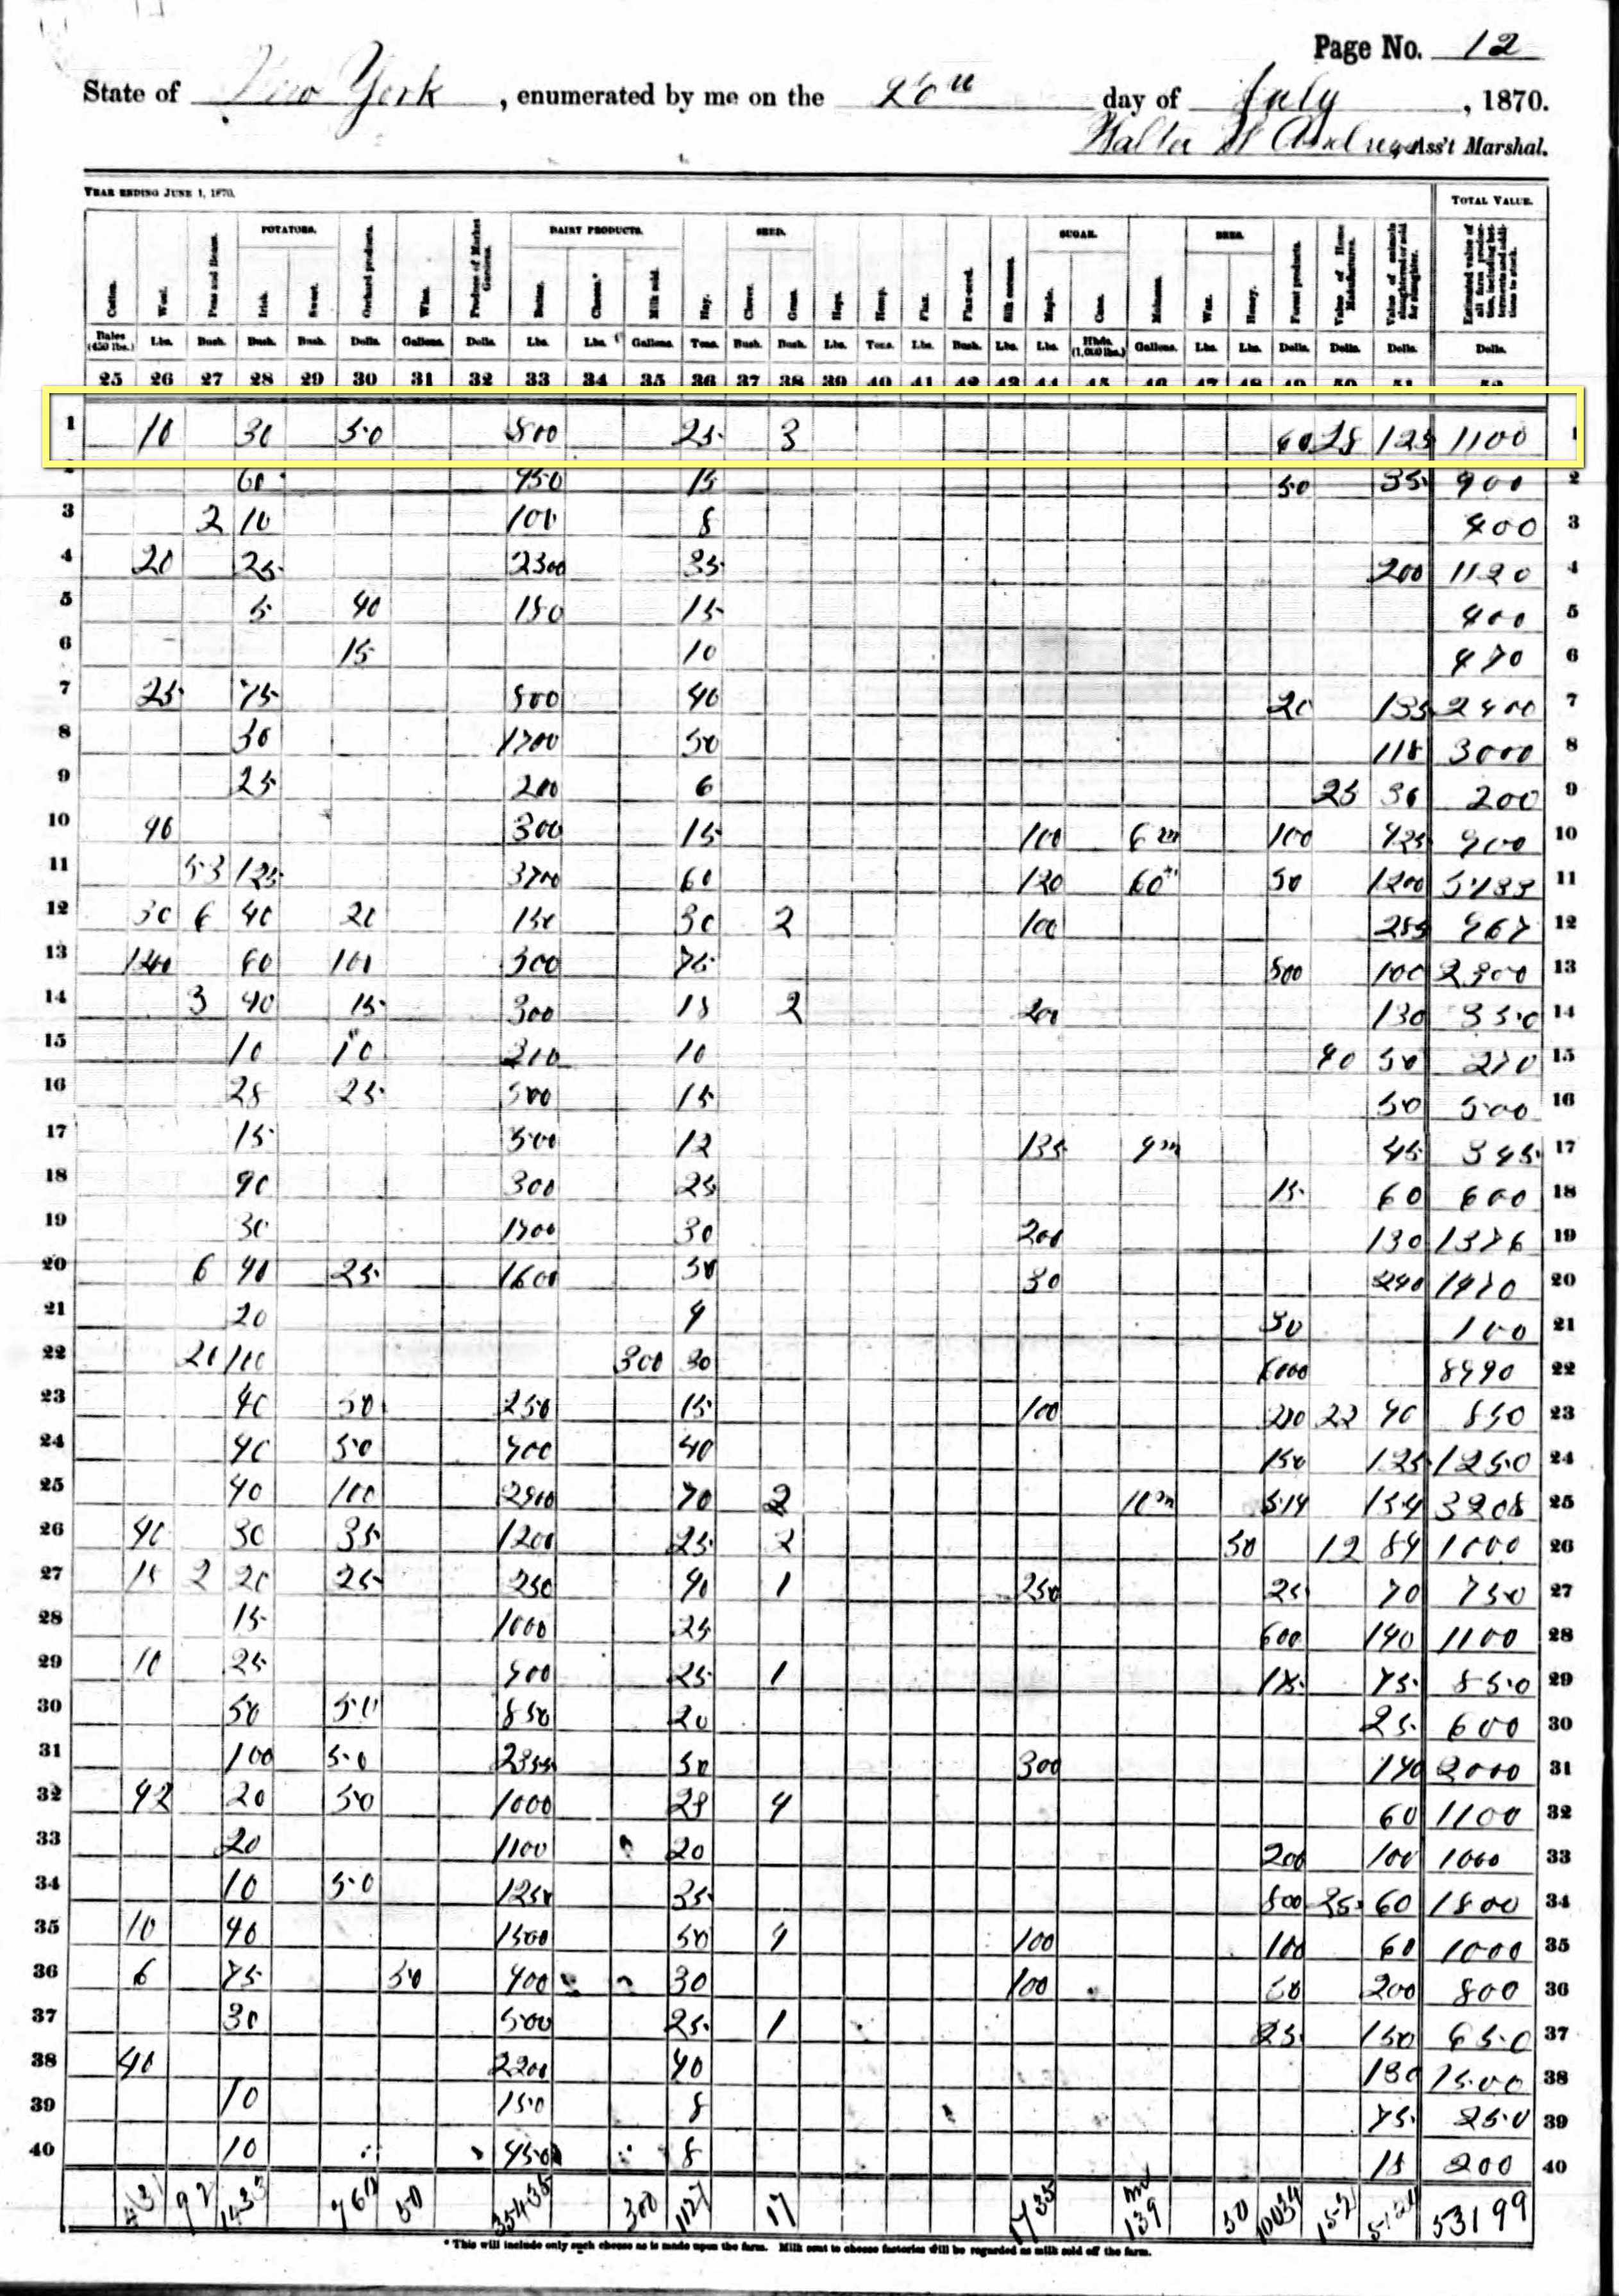 Page No. 12
State of New York, enumerated by me on the day of July, 1870.
Walter W Andrews Ass't Marshal.
YEAR ENDING JUNE 1, 1870. TOTAL VALUE.
POTATOES. DAIRY PRODUCTS. SEED. SUGAR. BEES.
Cotton. Wool. Peas and Beans. Irish. Sweet. Orchard products. Wine. Produce of Market Gardens. Butter. Cheese.* Milk sold. Hay. Clover. Grass. Hops. Hemp. Flax. Flax-seed. Silk cocoons. Maple. Cane. Molasses. Wax. Honey. Forest products. Value of Home Manufactures. Value of animals slaughtered or sold for slaughter. Estimated value of all farm production, including betterments and additions to stock.
Bales (450 lbs.) Lbs. Bush. Bush. Bush. Dolls. Gallons. Dolls. Lbs. Lbs. Gallons. Tons. Bush. Bush. Lbs. Tons. Lbs. Bush. Lbs. Lbs. Hhds. (1,000 lbs.) Gallons. Lbs. Lbs. Dolls. Dolls. Dolls. Dolls.
25 26 27 28 29 30 31 32 33 34 35 36 37 38 39 40 41 42 43 44 45 46 47 48 49 50 51 52
1 10 30 50 800 25 3 28 125 1100 1
2 60 450 15 50 35 900 2
3 2 10 100 8 400 3
4 20 25 2300 35 200 1120 4
5 5 40 150 15 400 5
6 15 10 470 6
7 25 75 500 40 20 135 2400 7
8 30 1700 50 118 3000 8
9 25 200 6 25 36 200 9
10 40 300 15 100 6 m 100 425 900 10
11 53 125 3700 60 120 60 50 1200 11
12 30 6 40 20 150 30 2 100 285 967 12
13 60 100 300 75 500 100 2300 13
14 3 40 15 300 18 2 200 130 350 14
15 10 10 200 10 40 50 270 15
16 28 25 500 15 50 500 16
17 15 500 12 135 9 m 45 345 17
18 90 300 25 15 60 600 18
19 30 1700 30 200 130 1376 19
20 6 40 25 1600 50 30 240 1470 20
21 20 4 30 100 21
22 20 100 300 30 6000 8490 22
23 40 50 250 15 100 200 22 40 850 23
24 40 50 400 40 150 125 1250 24
25 40 100 2900 70 2 10 m 514 154 3208 25
26 40 30 35 1200 25 2 50 12 84 1000 26
27 15 2 20 25 250 40 1 250 25 70 750 27
28 15 1000 25 600 140 1100 28
29 10 25 400 25 1 175 75 850 29
30 50 50 850 20 25 600 30
31 100 50 2355 50 300 140 2000 31
32 42 20 50 1000 28 4 60 1100 32
33 20 1100 20 200 100 1000 33
34 10 50 1250 35 800 25 60 1800 34
35 10 40 1500 50 4 100 100 60 1000 35
36 6 75 50 400 30 100 50 200 800 36
37 30 500 25 1 25 150 650 37
38 40 2200 40 130 1500 38
39 10 150 8 75 250 39
40 10 450 8 15 200 40
431 92 1433 760 50 35435 300 1127 17 1735 139 50 10034 152 5124 53199
* This will include only such cheese as is made upon the farm. Milk sent to cheese factories will be regarded as milk sold off the farm.